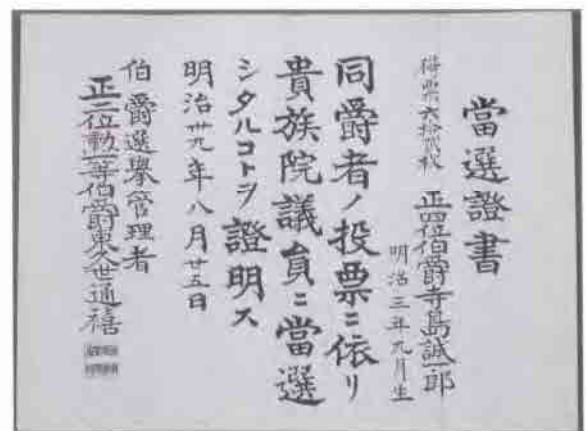 當選證書
得票六拾弐枚
正四位伯爵寺島誠一郎
明治三年九月生
同爵者ノ投票ニ依リ
貴族院議員ニ當選
シタルコトヲ證明ス
明治卅九年八月廿五日
伯爵選擧管理者
正二位勲一等伯爵東久世通禧